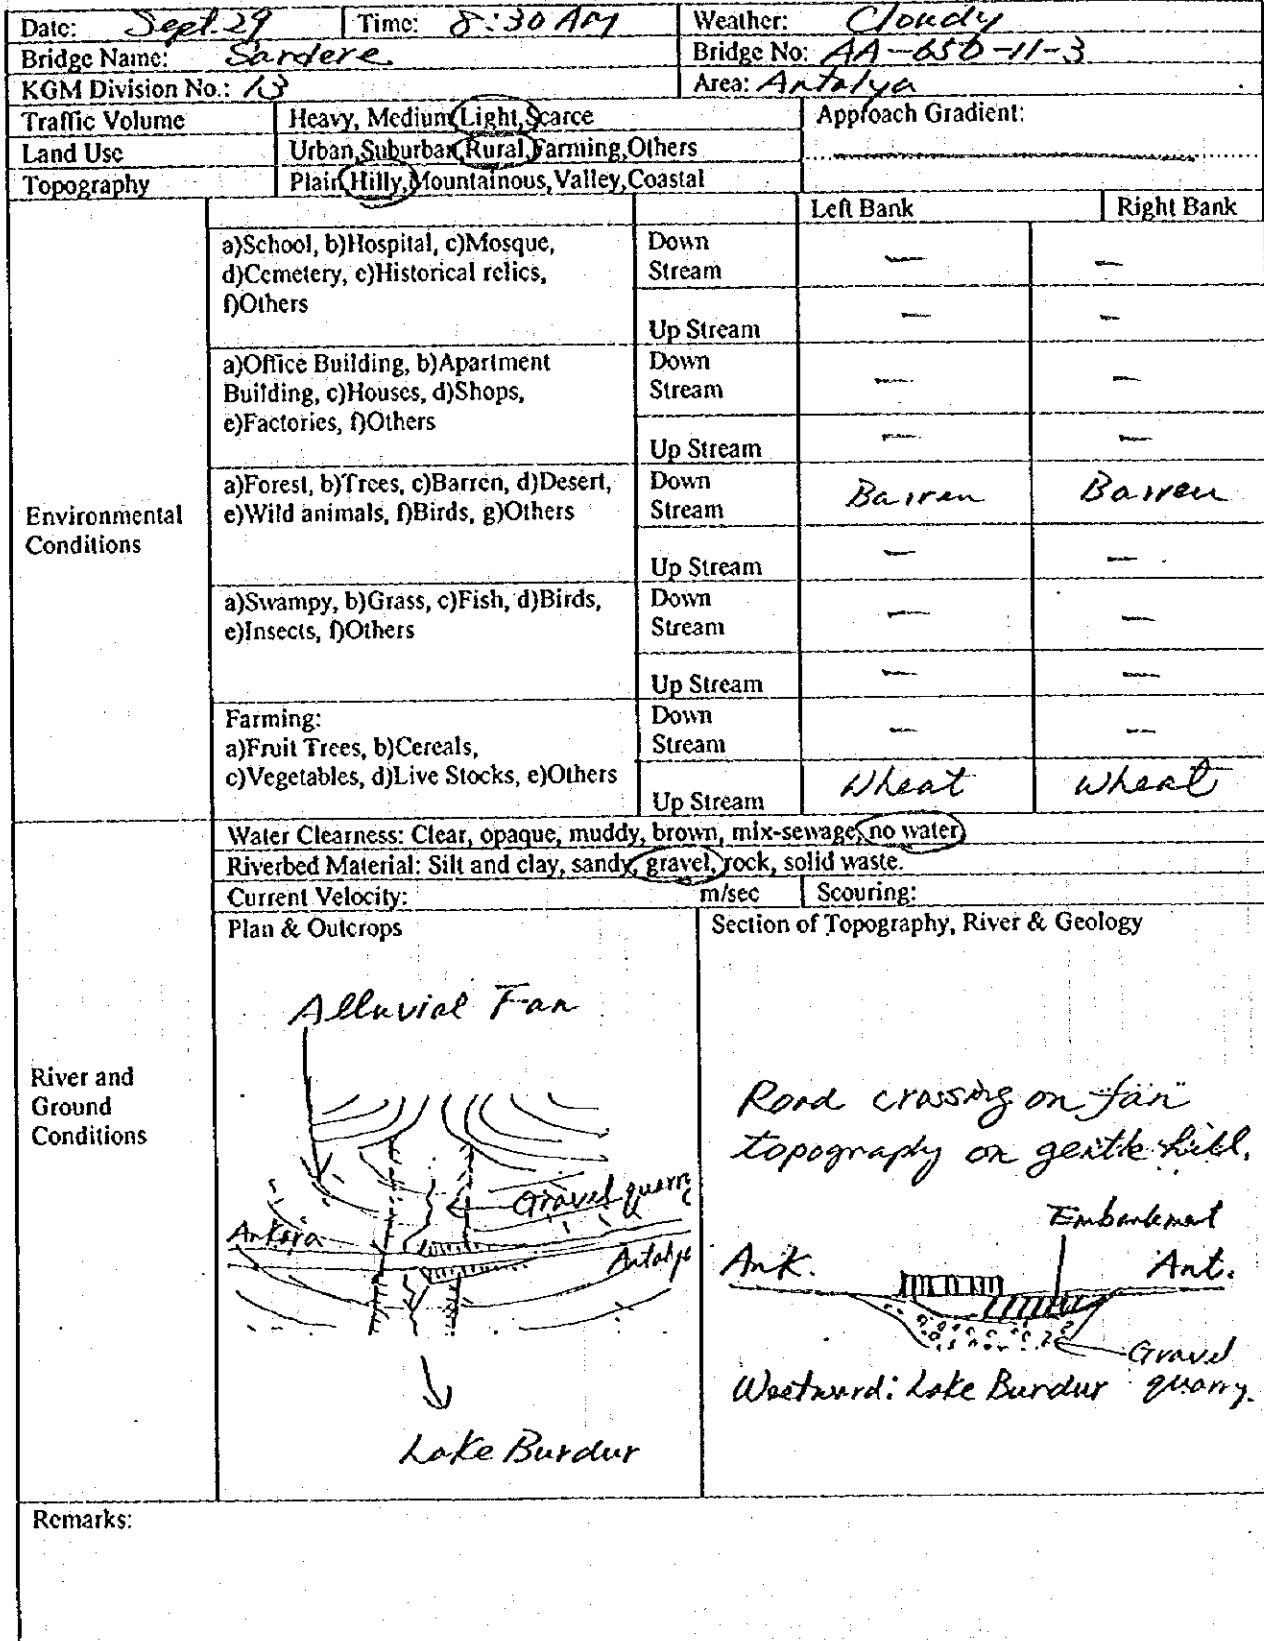 Date: Sept. 29 Time: 8:30 AM Weather: Cloudy
Bridge Name: Sardere Bridge No: AA-650-11-3
KGM Division No.: 13 Area: Antalya
Traffic Volume Heavy, Medium, Light, Scarce Approach Gradient:
Land Use Urban, Suburban, Rural, Farming, Others
Topography Plain, Hilly, Mountainous, Valley, Coastal
Left Bank Right Bank
Environmental Conditions
a)School, b)Hospital, c)Mosque, Down
d)Cemetery, e)Historical relics, Stream — —
f)Others
Up Stream — —
a)Office Building, b)Apartment Down
Building, c)Houses, d)Shops, Stream — —
e)Factories, f)Others
Up Stream — —
a)Forest, b)Trees, c)Barren, d)Desert, Down
e)Wild animals, f)Birds, g)Others Stream Barren Barren
Up Stream — —
a)Swampy, b)Grass, c)Fish, d)Birds, Down
e)Insects, f)Others Stream — —
Up Stream — —
Farming: Down
a)Fruit Trees, b)Cereals, Stream — —
c)Vegetables, d)Live Stocks, e)Others
Up Stream Wheat Wheat
River and
Ground
Conditions
Water Clearness: Clear, opaque, muddy, brown, mix-sewage, no water
Riverbed Material: Silt and clay, sandy, gravel, rock, solid waste.
Current Velocity: m/sec Scouring:
Plan & Outcrops
Alluvial Fan
Gravel quarry
Ankara
Antalya
Lake Burdur
Section of Topography, River & Geology
Road crossing on "fan"
topography on gentle hill.
Embankment
Ank. Ant.
Gravel
quarry.
Westward: Lake Burdur
Remarks: